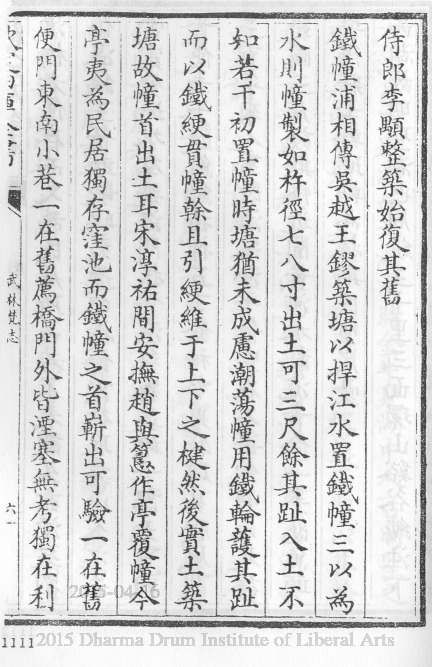 侍郎李顒整築始復其舊
鐵幢浦相傳吳越王鏐築塘以捍江水置鐵幢三以為
水則幢製如杵徑七八寸出土可三尺餘其趾入土不
知若干初置幢時塘猶未成慮潮蕩幢用鐵輪護其趾
而以鐵綆貫幢榦且引綆維于上下之楗然後實土築
塘故幢首出土耳宋淳祐間安撫趙與𥲅作亭覆幢今
亭夷為民居獨存窪池而鐵幢之首嶄出可驗一在舊
便門東南小巷一在舊薦橋門外皆湮塞無考獨在利
武林梵志
六一
1111
2015-04-16
2015 Dharma Drum Institute of Liberal Arts